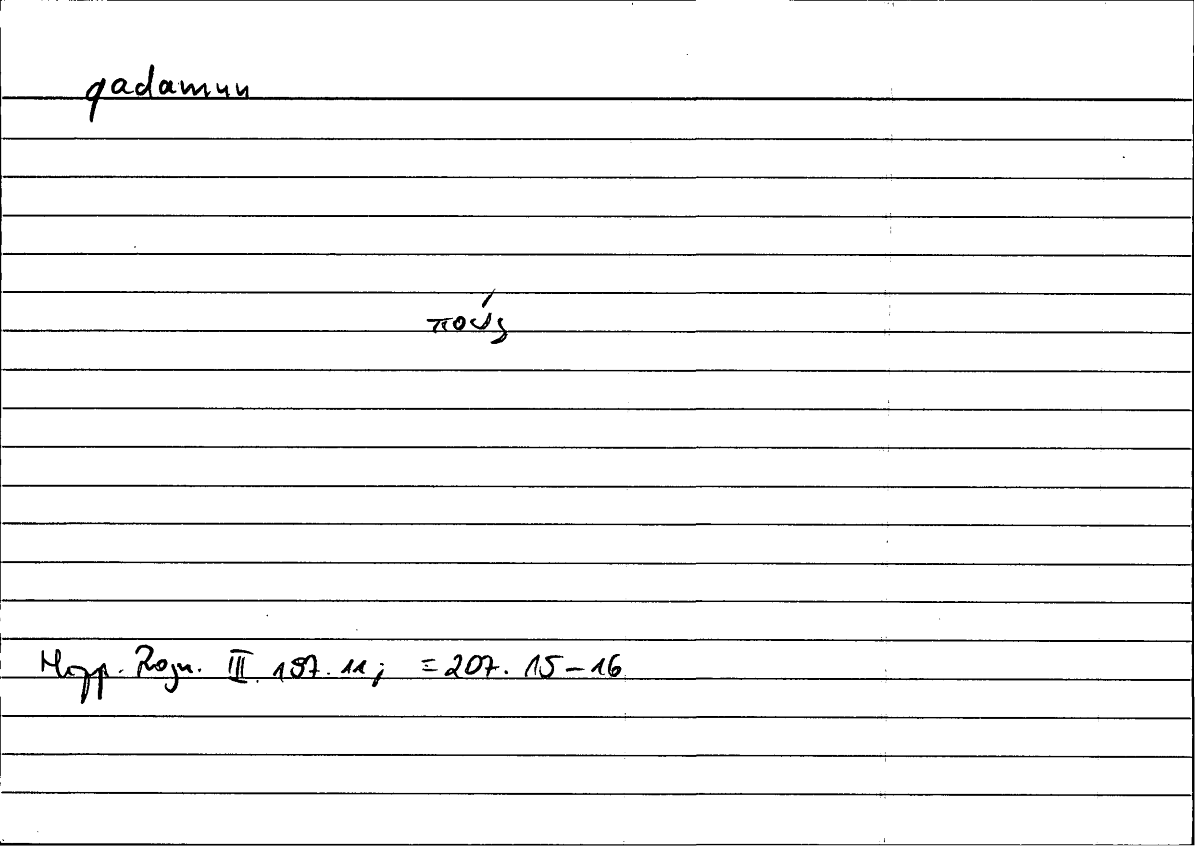 qadamun
πούς
Hipp. Progn. III. 197. 11; = 207. 15–16